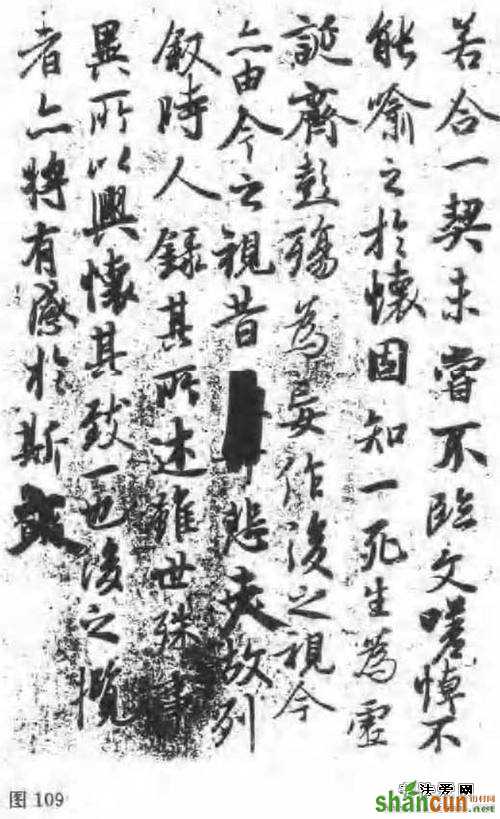 若合一契未嘗不臨文嗟悼不
能喻之於懷固知一死生為虛
誕齊彭殤為妄作後之視今
亦由今之視昔悲夫故列
叙時人錄其所述雖世殊事
異所以興懷其致一也後之攬
者亦將有感於斯文
图 109
法爱网
shancun
.net